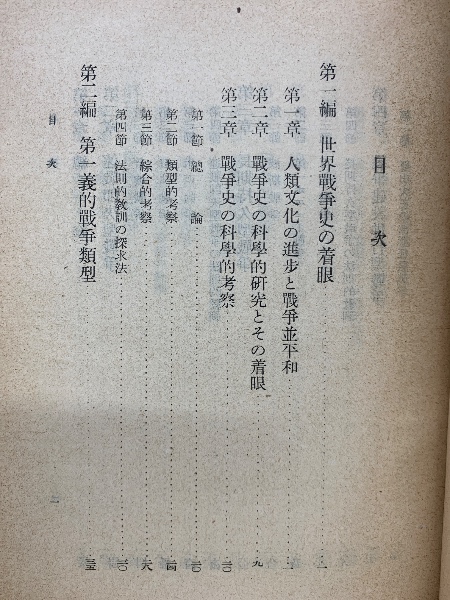 目次
第一編 世界戰爭史の着眼……一
第一章 人類文化の進步と戰爭並平和……一
第二章 戰爭史の科學的硏究とその着眼……九
第三章 戰爭史の科學的考察
第一節 總論
第二節 類型的考察
第三節 綜合的考察
第四節 法則的敎訓の探求法
第二編 第一義的戰爭類型
目次
一